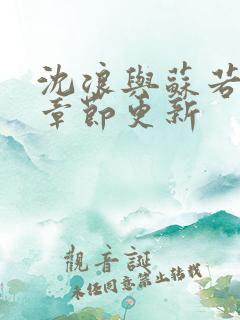 沈浪與蘇若
章節更新
觀音誕
未經同意禁止轉載